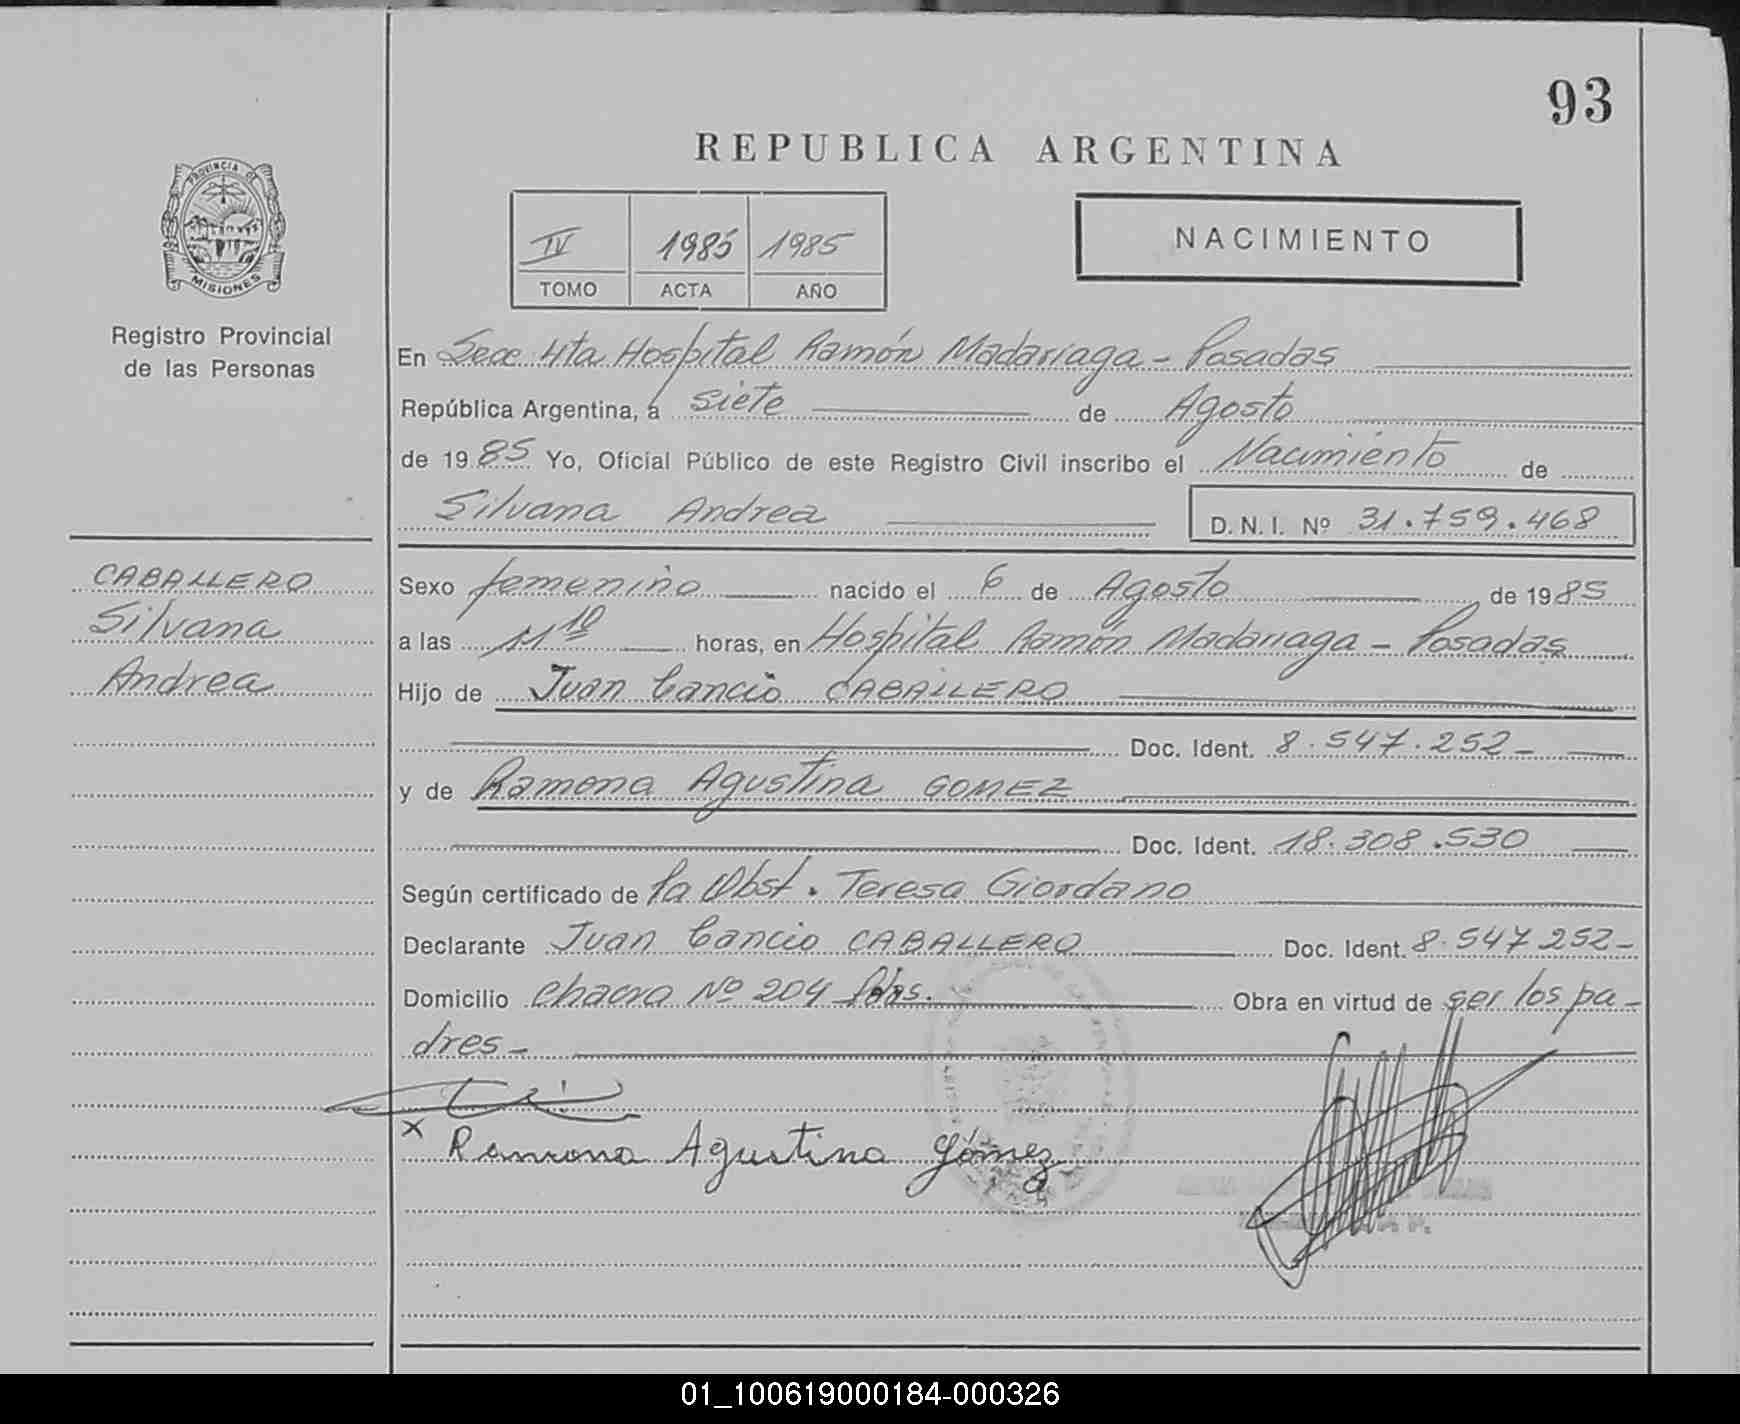 93
REPUBLICA ARGENTINA
PROVINCIA DE
MISIONES
Registro Provincial
de las Personas
IV 1985 1985
TOMO ACTA AÑO
NACIMIENTO
En Secc. 4ta. Hospital Ramón Madariaga - Posadas
República Argentina, a siete de Agosto
de 1985 Yo, Oficial Público de este Registro Civil inscribo el Nacimiento de
Silvana Andrea
D. N. I. Nº 31.759.468
CABALLERO
Silvana
Andrea
Sexo femenino nacido el 6 de Agosto de 1985
a las 11 10 horas, en Hospital Ramón Madariaga - Posadas
Hijo de Juan Cancio CABALLERO
Doc. Ident. 8.547.252-
y de Ramona Agustina GOMEZ
Doc. Ident. 18.308.530
Según certificado de la Obst. Teresa Giordano
Declarante Juan Cancio CABALLERO Doc. Ident. 8.547252-
Domicilio chacra Nº 204 Pdas. Obra en virtud de ser los pa-
dres-
x Ramona Agustina Gómez
01_100619000184-000326